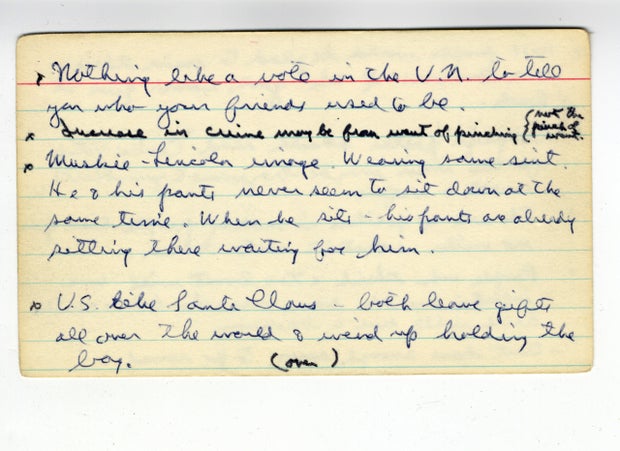 Nothing like a vote in the U.N. to tell
you who your friends used to be.
Increase in crime may be from want of pinching (not the
pinch of
want.
Muskie - Lincoln image. Wearing same suit.
He & his pants never seem to sit down at the
same time. When he sits - his pants are already
sitting there waiting for him.
U.S. like Santa Claus - both leave gifts
all over the world & wind up holding the
bag.
(over)